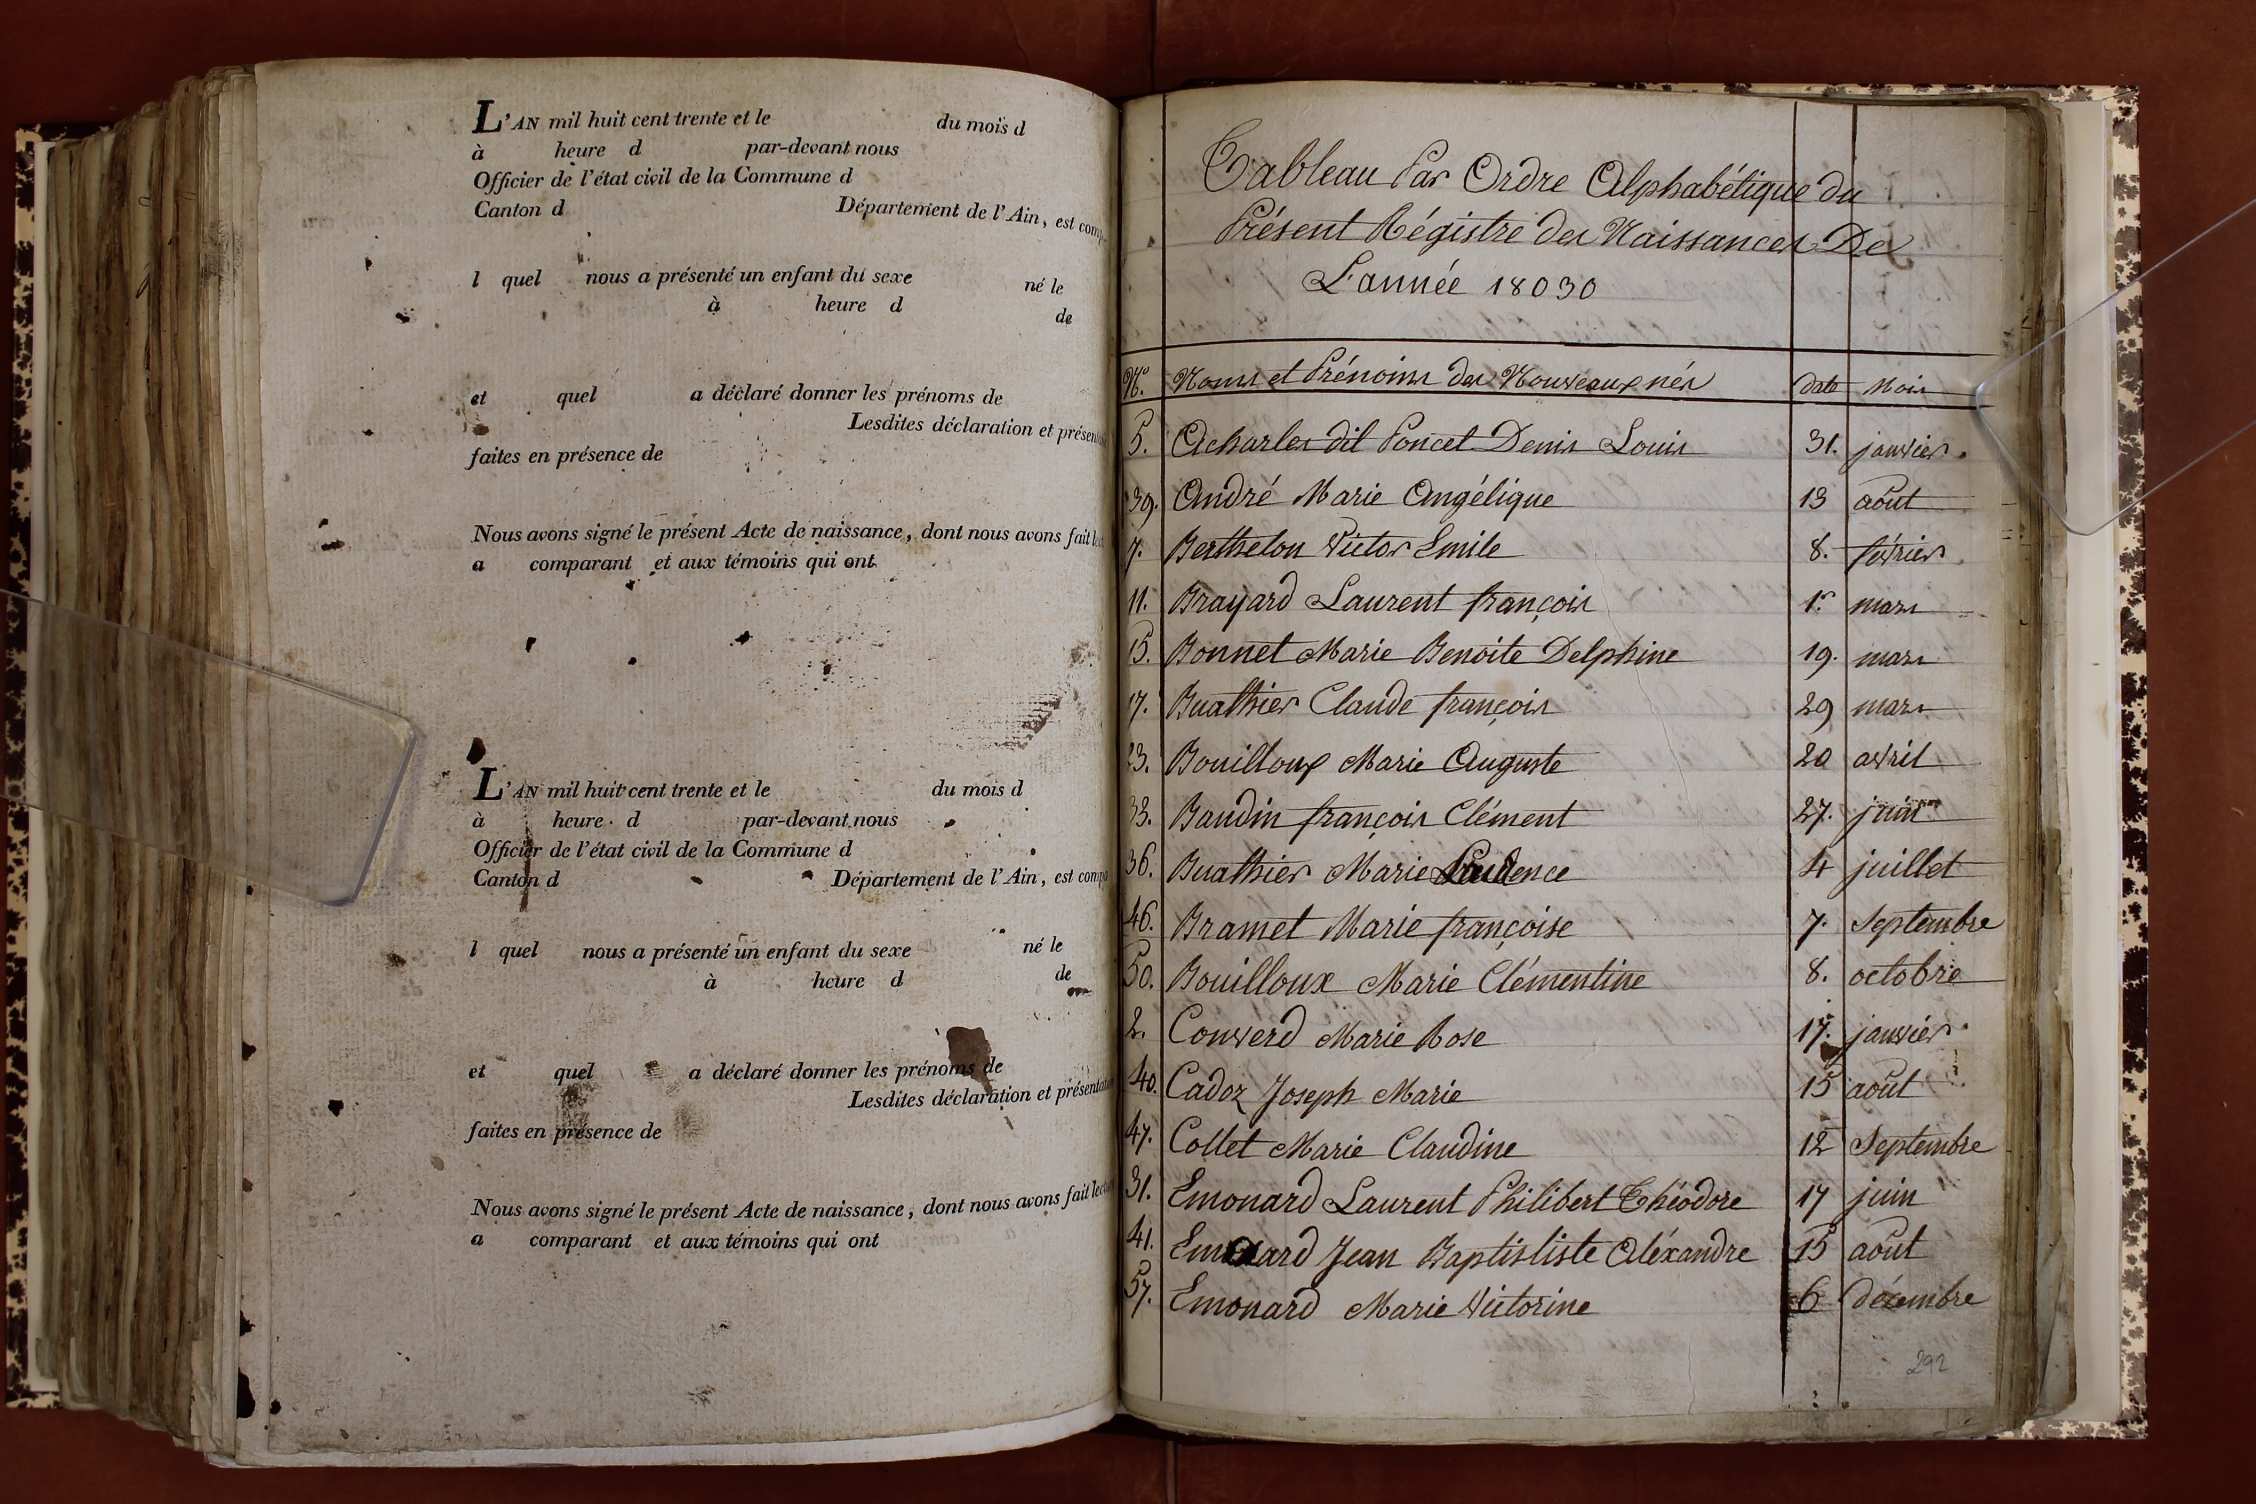 L'AN mil huit cent trente et le du mois d
à heure d par-devant nous
Officier de l'état civil de la Commune d
Canton d Département de l'Ain, est comp
l quel nous a présenté un enfant du sexe né le
à heure d de
et quel a déclaré donner les prénoms de
Lesdites déclaration et présent
faites en présence de
Nous avons signé le présent Acte de naissance, dont nous avons fait lec
a comparant et aux témoins qui ont
L'AN mil huit cent trente et le du mois d
à heure d par-devant nous
Officier de l'état civil de la Commune d
Canton d Département de l'Ain, est comp
l quel nous a présenté un enfant du sexe né le
à heure d de
et quel a déclaré donner les prénoms de
Lesdites déclaration et présentation
faites en présence de
Nous avons signé le présent Acte de naissance, dont nous avons fait lectu
a comparant et aux témoins qui ont
Tableau Par Ordre Alphabétique du
Présent Régistre des Naissances De
L'année 18030
N.º Noms et Prénoms des Nouveaux nés date Mois
5. Acharles dit Poncet Denis Louis 31. janvier
39. André Marie Angélique 13 août
7. Berthelon Victor Emile 8. février
11. Brayard Laurent françois 1.r mars
15. Bonnet Marie Benoite Delphine 19. mars
17. Buathier Claude françois 29 mars
23. Bouilloux Marie Auguste 20 avril
33. Baudin françois Clément 27. juin
36. Buathier Marie 4 juillet
46. Bramet Marie françoise 7. Septembre
50. Bouilloux Marie Clémentine 8. octobre
2. Converd Marie Rose 17. janvier
40. Cadoz Joseph Marie 15 août
47. Collet Marie Claudine 12 Septembre
31. Emonard Laurent Philibert Théodore 17 juin
41. Emonard Jean Baptististe Aléxandre 15 août
57. Emonard Marie Victorine 6 décembre
292